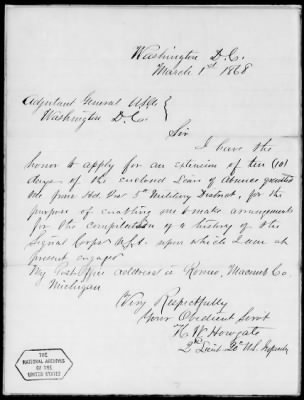 Washington D.C.
March 1st 1868
Adjutant General USA
Washington D.C.
Sir
I have the
honor to apply for an extension of ten (10)
days of the enclosed Leave of absence granted
me from Hd. Qrs 5th Military District, for the
purpose of enabling me to make arrangements
for the compilation of a history of the
Signal Corps U.S.A. upon which I am at
present engaged
My Post Office address is Romeo, Macomb Co.
Michigan
Very Respectfully
Your Obedient Servt
H. W. Howgate
2d Lieut 20th U.S. Infantry
THE
NATIONAL ARCHIVES
OF THE
UNITED STATES